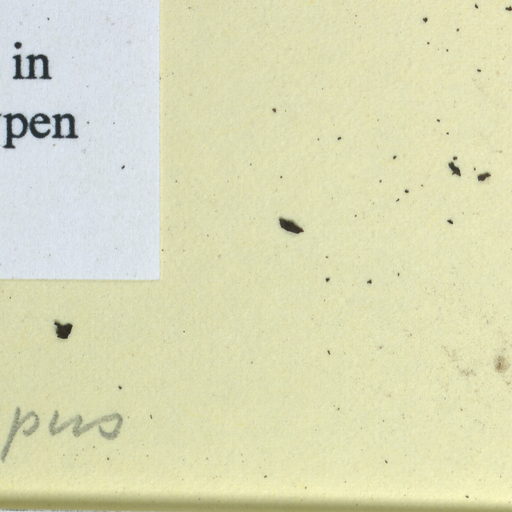 in
ypen
pus